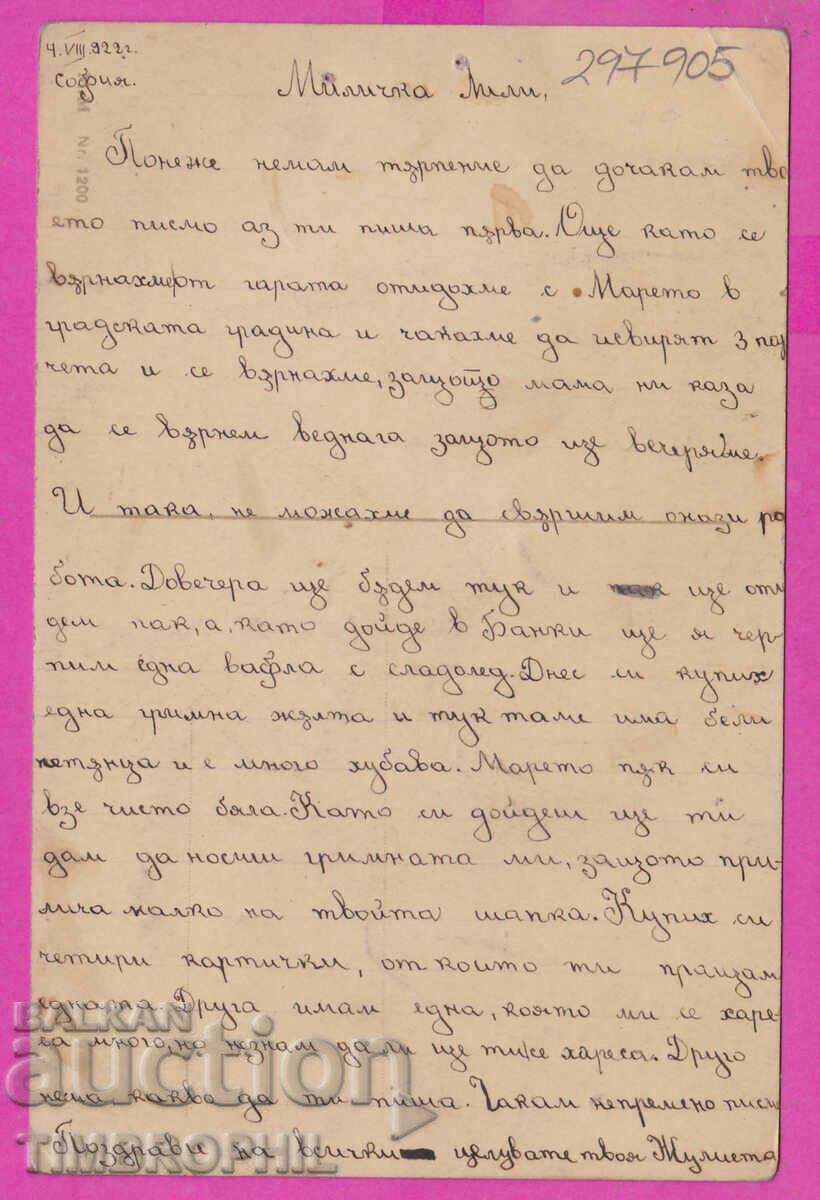 4.VIII.922г.
София.
297905
Nr. 1200
Миличка Мили,
Понеже немам търпение да дочакам тво
ето писмо аз ти пиша пѫрва. Още като се
вѫрнахме от гарата отидохме с Марето в
градската градина и чакахме да исвирят 3 пар
чета и се вѫрнахме, защото мама ни каза
да се вѫрнем веднага защото ще вечеряме.
И така, не можахме да свѫршим онази ра
бота. Довечера ще бѫдем тук и ще оти
дем пак, а, като дойде в Банки ще я чер-
пим една вафла с сладолед. Днес си купих
една гримна жѫлта и тук таме има бели
петѫнца и е много хубава. Марето пѫк си
взе чисто бяла. Като си дойдеш ще ти
дам да носиш гримната ми, защото при-
лича малко на твойта шапка. Купих си
четири картички, от които ти пращам
едната. Друга имам една, която ми се харе-
са много, но незнам дали ще ти се хареса. Друго
нема какво да ти пиша. Чакам непременно писмо
Поздрави на всички целувате твоя Жулиета
BALKAN
auction
TIMBROPHIL